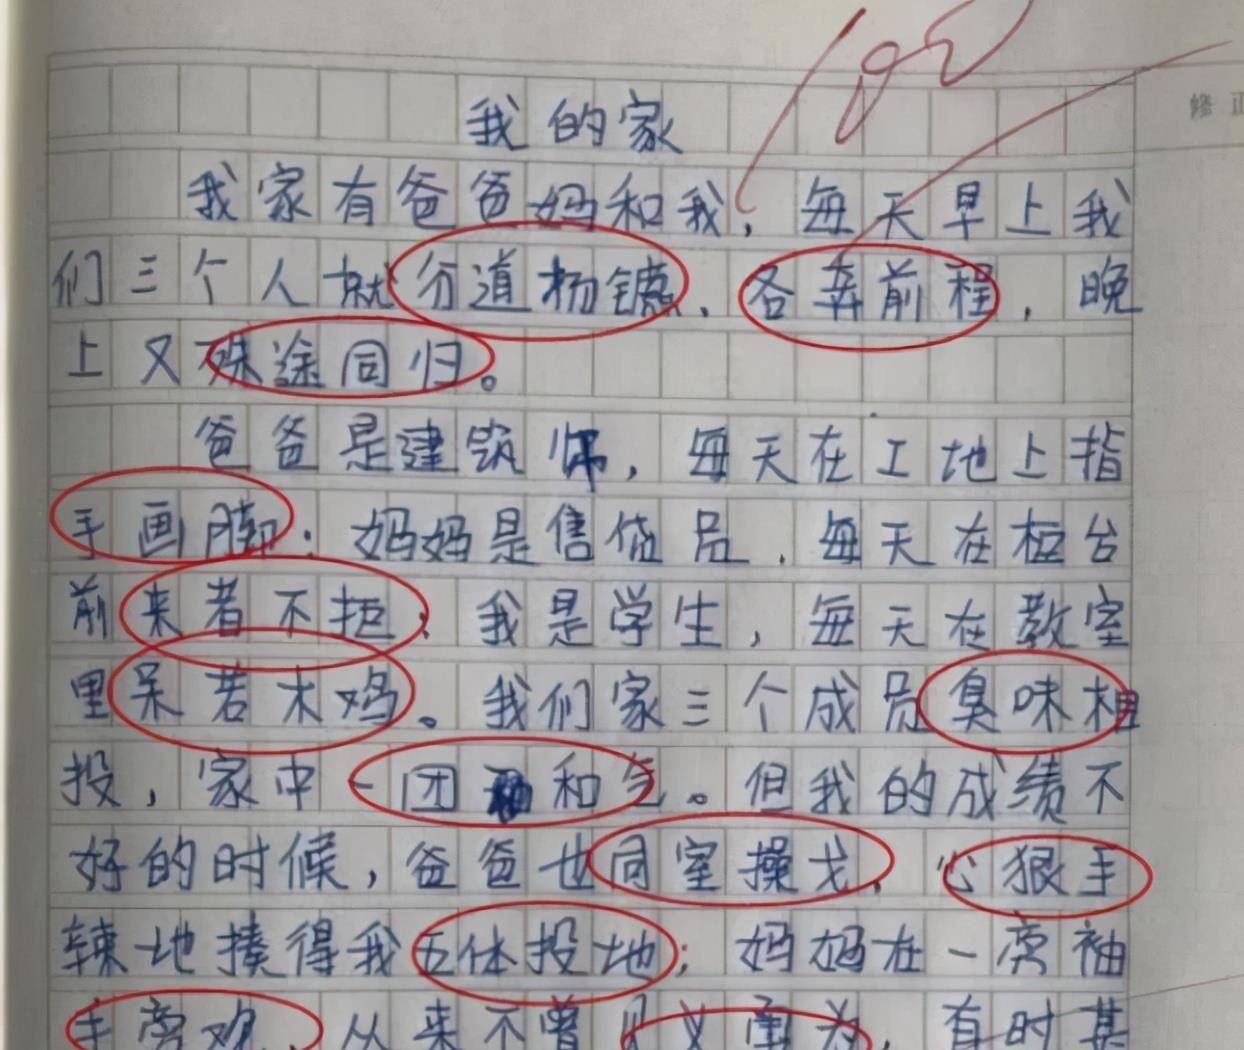 100
修正
我的家
我家有爸爸妈和我，每天早上我
们三个人就分道扬镳，各奔前程，晚
上又殊途同归。
爸爸是建筑师，每天在工地上指
手画脚；妈妈是售货员，每天在柜台
前来者不拒；我是学生，每天在教室
里呆若木鸡。我们家三个成员臭味相
投，家中一团和气。但我的成绩不
好的时候，爸爸也同室操戈，心狠手
辣地揍得我五体投地；妈妈在一旁袖
手旁观，从来不曾见义勇为，有时甚